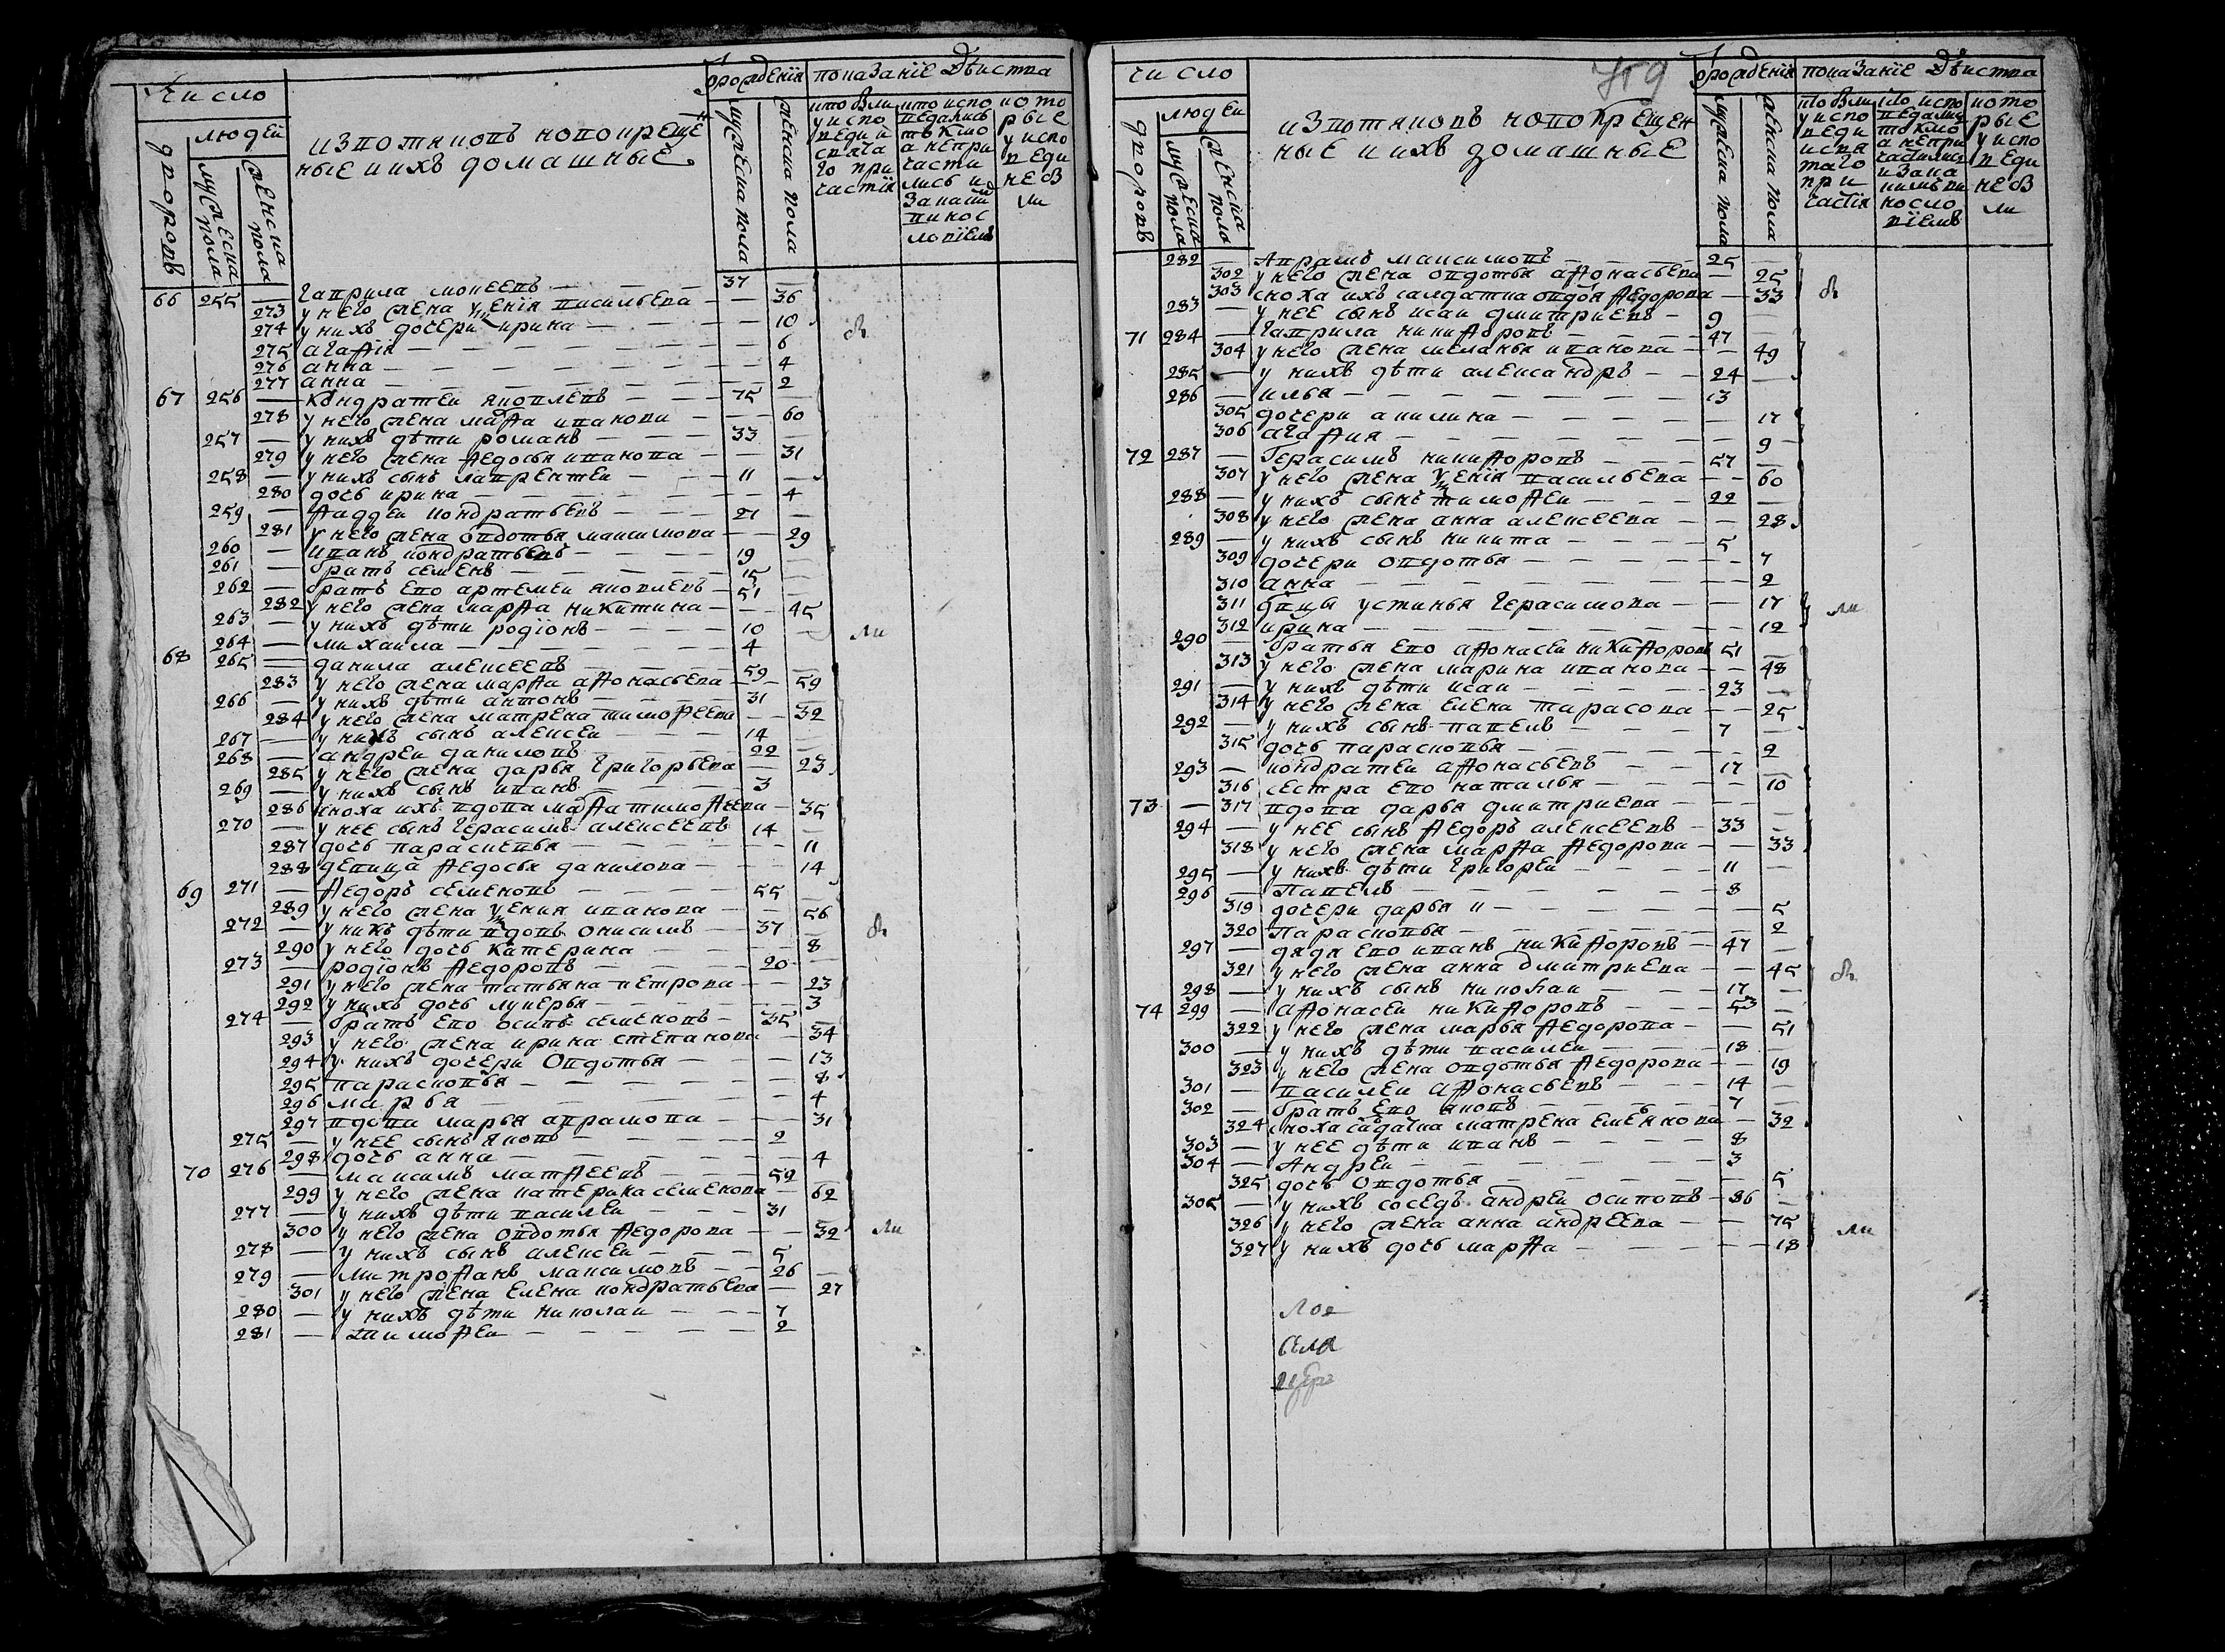 Число
людей
дворовъ
мужеска пола
женска пола
изъ вотяковъ новокрещен
ные и ихъ домашные
рождения
мужеска пола
женска пола
показание действа
кто были
у испо
веди и
свята
го при
частия
кто испо
ведались
токмо
а непри
части
лись и
за каки
ми нос
ловиемъ
кото
рые
у испо
веди
не бы
ли
66 255 — Гаврила моисеевъ — 37 —
273 у него жена уѯения васильева — 36
274 у нихъ дочери ирина — 10
275 агафия — 6
276 анна — 4
277 анна — 2
67 256 — Кондратеи яковлевъ — 75 —
278 у него жена марфа иванова — 60
257 — у нихъ дѣти романъ — 33 —
279 у него жена федосья иванова — 31
258 — у нихъ сынъ лаврентеи — 11 —
280 дочь ирина — 4
259 — Фаддеи кондратьевъ — 21 —
281 у него жена овдотья максимова — 29
260 — Иванъ кондратьевъ — 19
261 — братъ семенъ — 15 —
262 — братъ ево артемеи яковлевъ — 51 —
282 у него жена марфа никитина — 45
263 — у нихъ дѣти родионъ — 10 —
264 — михаила — 4
68 265 — данила алексеевъ — 59 —
283 у него жена марфа афонасьева — 59
266 — у нихъ дѣти антонъ — 31
284 у него жена матрена тимофеева — 32
267 — у нихъ сынъ алексеи — 14 —
268 — андреи даниловъ — 22
285 у него жена дарья григорьева — 23
269 — у нихъ сынъ иванъ — 3
286 сноха ихъ вдова марфа тимофеева — 35
270 — у нее сынъ герасимъ алексеевъ 14 —
287 дочь парасковья — 11
288 девица федосья данилова — 14
69 271 — Федоръ семеновъ — 55 —
289 у него жена уѯения иванова — 56
272 — у нихъ дѣти вдовъ онисимъ — 37 —
290 у него дочь катерина — 8
273 — родионъ федоровъ — 20 —
291 у него жена татьяна петрова — 23
292 у нихъ дочь лукерья — 3
274 — братъ ево осипъ семеновъ — 35 —
293 у него жена ирина степанова — 34
294 у нихъ дочери овдотья — 13
295 парасковья — 8
296 марья — 4
297 вдова марья аврамова — 31
275 — у нее сынъ яковъ — 2
298 дочь анна — 4
70 276 — максимъ матфеевъ — 59 —
299 у него жена катерина семенова — 62
277 — у нихъ дѣти василеи — 31
300 у него жена овдотья федорова — 32
278 — у нихъ сынъ алексеи — 5
279 — митрофанъ максимовъ — 26 —
301 у него жена елена кондратьева — 27
280 — у нихъ дѣти николаи — 7
281 — тимофеи — 2
бы
ли
бы
ли
число
людеи
дворовъ
мужеска пола
женска пола
изъ вотяковъ новокрещен
ные и ихъ домашные
рождения
мужеска пола
женска пола
показание действа
кото
рые
у испо
веди
не бы
ли
282 — Аврамъ максимовъ — 25 —
302 у него жена овдотья афонасьева — 25
303 сноха ихъ салдатка овдотья федорова — 33
283 — у нее сынъ исаи дмитриевъ — 9 —
71 284 — гаврила никифоровъ — 47
304 у него жена меланья иванова — 49
285 — у нихъ дѣти александръ — 24 —
286 — илья — 13
305 дочери акилина — 17
306 агафия — 9
72 287 — Герасимъ никифоровъ — 57 —
307 у него жена уѯения васильева — 60
288 — у нихъ сынъ тимофеи — 22 —
308 у него жена анна алексеева — 28
289 — у нихъ сынъ никита — 5
309 дочери овдотья — 7
310 анна — 2
311 двцы устинья герасимова — 17
312 ирина — 12
290 — братья ево афонасеи никифоровъ 51 —
313 у него жена марина иванова — 48
291 — у нихъ дѣти исаи — 23 —
314 у него жена елена тарасова — 25
292 — у нихъ сынъ павелъ — 7 —
315 дочь парасковья — 2
293 — кондратеи афонасьевъ — 17 —
316 сестра ево наталья — 10
73 — 317 вдова дарья дмитриева — —
294 — у нее сынъ федоръ алексеевъ — 33 —
318 у него жена марфа федорова — 33
295 — у нихъ дѣти григореи — 11 —
296 — Павелъ — 8
319 дочери дарья — 5
320 Парасковья — 2
297 — дядя ево иванъ никифоровъ — 47 —
321 у него жена анна дмитриева — 45
298 — у нихъ сынъ николаи — 17 —
74 299 — афонасеи никифоровъ — 53 —
322 у него жена марья федорова — 51
300 — у нихъ дѣти василеи — 18 —
323 у него жена овдотья федорова — 19
301 — василеи афонасьевъ — 14 —
302 — братъ ево яковъ — 7
324 сноха салдатка матрена емельянова — 32
303 — у нее дѣти иванъ — 8
304 — Андреи — 3
325 дочь овдотья — 5
305 — у нихъ соседъ андреи осиповъ — 86 —
326 у него жена анна андреева — 75
327 у нихъ дочь марфа — 18
бы
ли
бы
ли
села